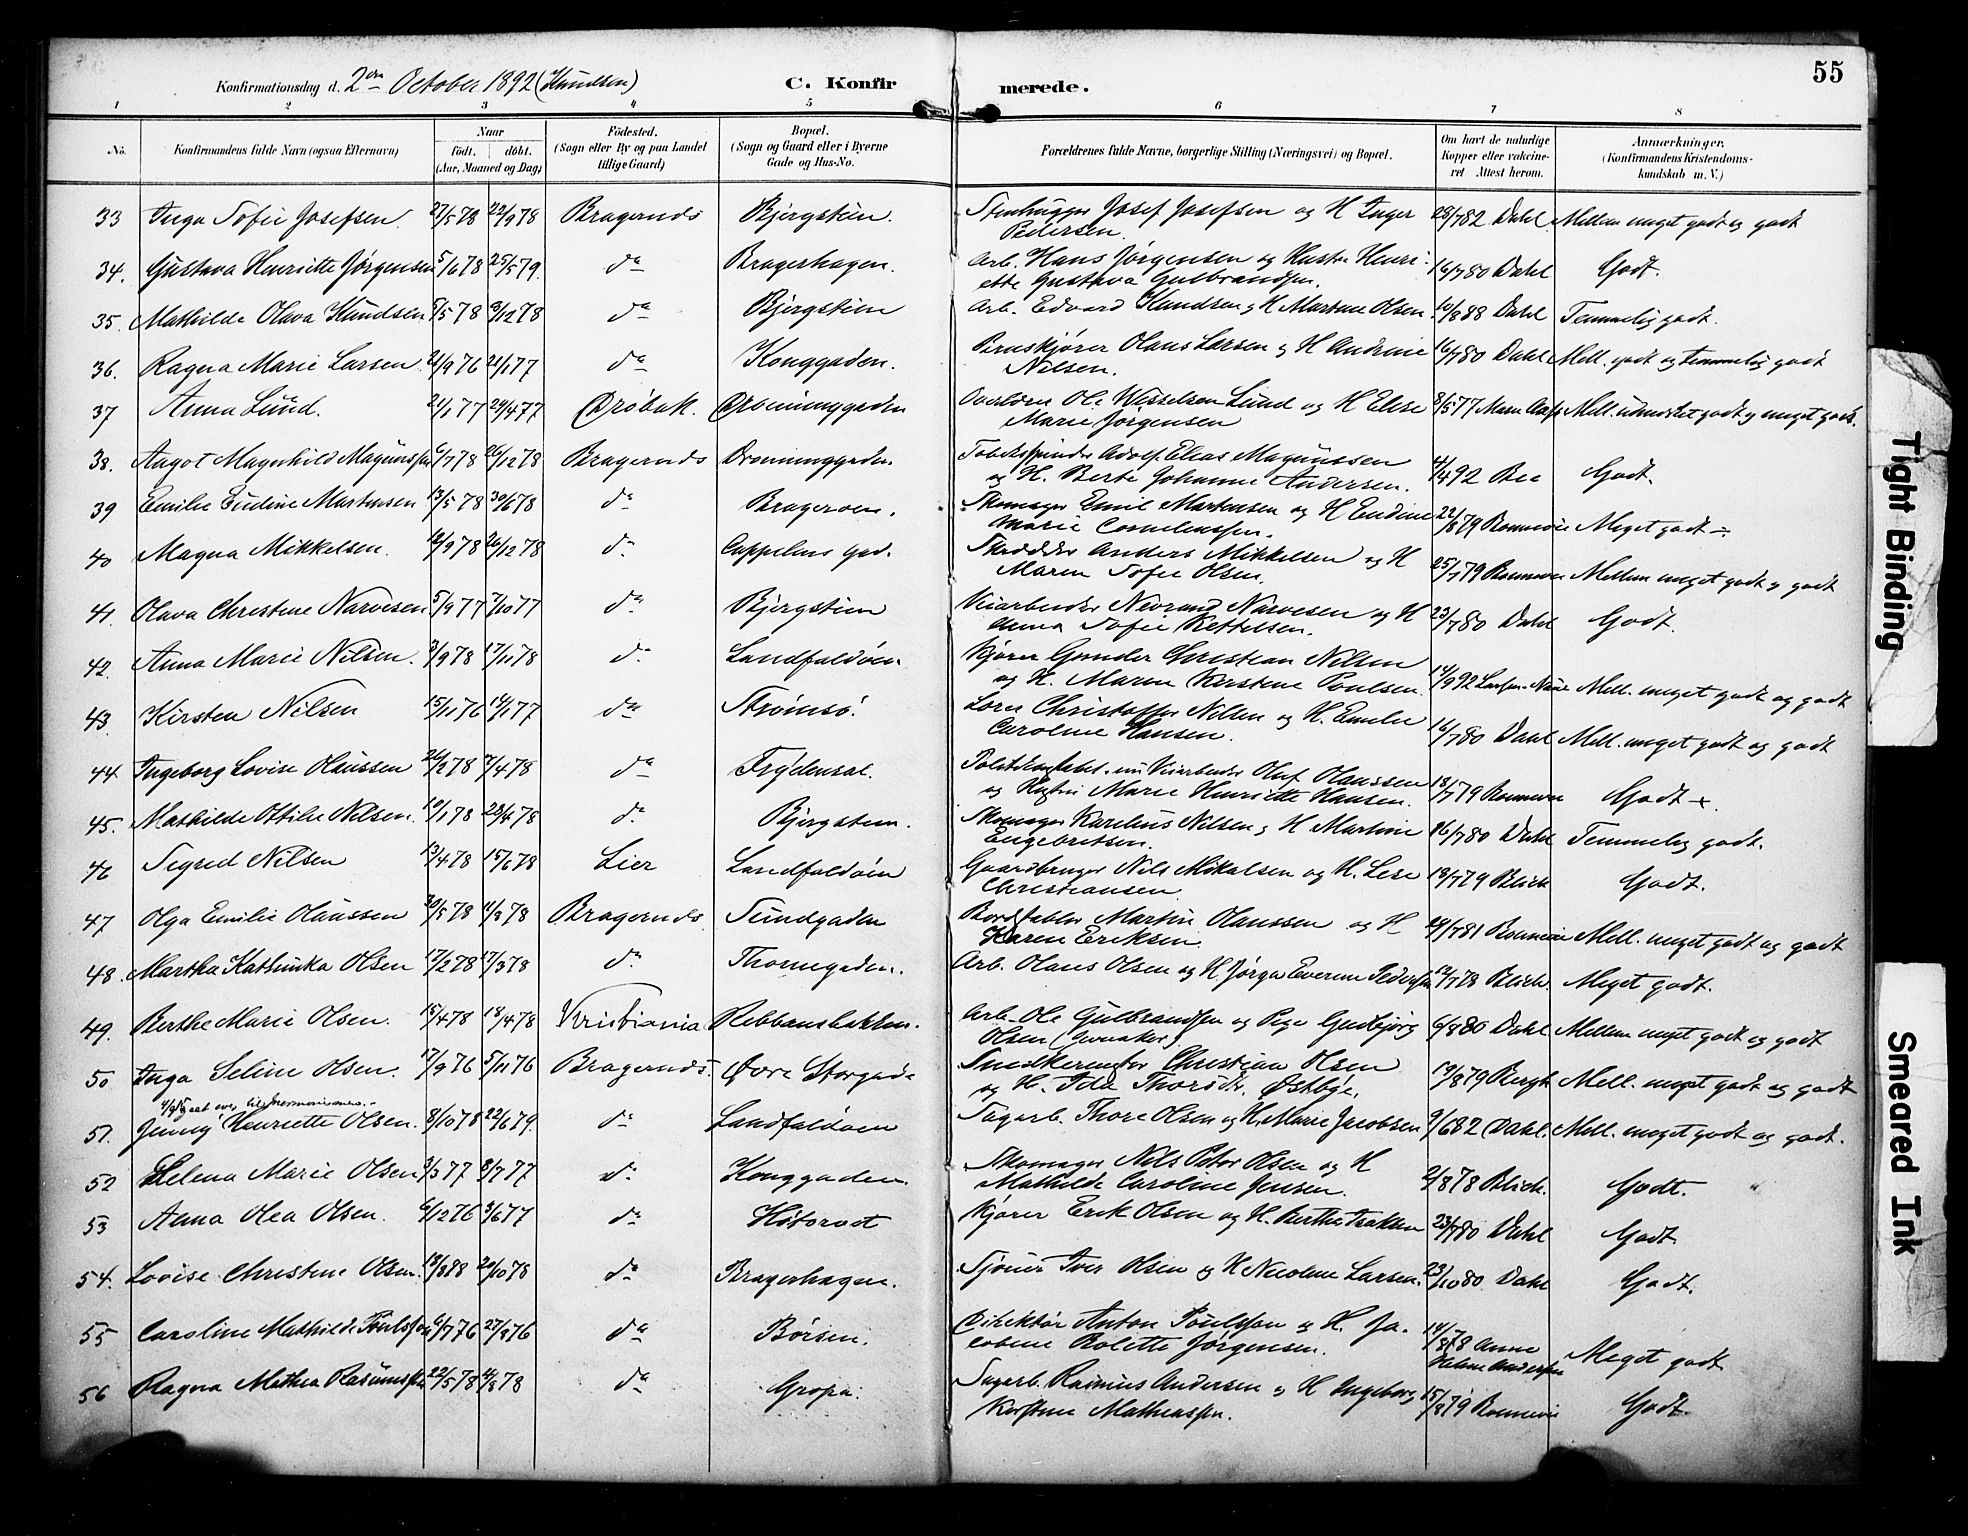 55
Konfirmationsdag d. 2den October 1892 (Knudsen) C. Konfirmerede.
1 2 3 4 5 6 7 8
No. Konfirmandens fulde Navn (ogsaa Efternavn) Naar födt. döbt. (Aar, Maaned og Dag) Födested. (Sogn eller By og paa Landet tillige Gaard) Bopæl. (Sogn og Gaard eller i Byerne Gade og Hus-No. Forældrenes fulde Navne, borgerlige Stilling (Næringsvei) og Bopæl. Om havt de naturlige Kopper eller vakcineret Attest herom. Anmærkninger. (Konfirmandens Kristendomskundskab m. V.)
33 Inga Sofie Josefsen. 27/5 78 22/9 78 Bragernæs Bjergstien. Stenhugger Josef Josefsen og H Inger 28/7 82 Dahl Mellem meget godt og godt
Pedersen.
34. Gustava Henriette Jørgensen 5/6 78 25/5 79. da Bragerhagen. Arb. Hans Jørgensen og Hustru Henri- 16/7 80 Dahl Godt.
ette Gustava Gulbrandsen.
35. Mathilde Olava Knudsen 5/5 78 8/12 78 da Bjergstien Arb. Edvard Knudsen, H Martine Olsen. 10/8 88 Dahl Temmelig godt.
36. Ragna Marie Larsen. 21/9 76 21/1 77 da Konggaden. Bruskjører Olaus Larsen og H Andrine 16/7 80 Dahl Mell. godt og temmelig godt
Nilsen.
37 Anna Lund. 21/1 77 29/4 77 Drøbak. Dronninggaden Ole Wesselsen Lund og H Elise 8/5 77 Mell. udmerket godt og meget godt.
Marie Jørgensen
38. Aagot Magnhild Magnussen 6/7 78 26/12 78 Bragernæs Dronninggaden. Adolf Elias Magnussen 4/4 92 Bee Godt.
og H. Berte Johanne Andersen.
39 Emilie Eudine Martensen 13/5 78 30/6 78 da Brageroen. Skomager Emil Martensen og H Eudine 22/8 79 Meget godt ÷
Marie Corneliussen.
40 Magna Mikkelsen. 12/9 78 26/12 78 da Cappelens gad. Skrædder Anders Mikkelsen og H 25/7 79 Mellem meget godt og godt
Maren Sofie Olsen.
41. Olava Christine Narvesen 5/9 77 7/10 77 da Bjergstien Veiarbeider Narvesen og H 23/7 80 Dahl Godt.
Anna Sofie Kettelsen.
42. Anna Marie Nilsen. 3/9 78 17/11 78 da Landfaldøen Kjører Gunder Christian Nilsen 14/9 92 Mell. meget godt og godt
og H. Maren Kirstine Poulsen.
43. Kirsten Nilsen 15/11 76 14/1 77 da Strømsø. Christoffer Nilsen og H. Emilie 16/7 80 Dahl Mell. meget godt og godt
Caroline Hansen.
44. Ingeborg Lovise Olaussen 26/2 78 7/4 78 da Frydensal. Veiarbeider Oluf Olaussen 18/7 79 Godt +.
og Hustru Marie Henriette Hansen.
45. Mathilde Ottilie Nilsen. 10/1 78 23/4 78 da Bjergstien. Skomager Karelius Nilsen, H Martine 16/7 80 Dahl Temmelig godt.
Engebretsen.
46 Sigrid Nilsen 13/4 78 15/6 78 Lier Landfaldøen Gaardbruger Nils Mikalsen og H. Lise 19/7 79 Blich Godt.
Christiansen
47 Olga Emilie Olaussen 20/5 78 11/8 78 Bragernæs. Sundgaden Martin Olaussen og H 19/7 81 Mell. meget godt og godt
Karen Eriksen.
48. Martha Kathinka Olsen 12/2 78 17/3 78 da Thornegaden. Arb. Olaus Olsen og H Jørga Everine Pedersen 12/7 78 Blich. Meget godt.
49. Berthe Marie Olsen. 15/4 78 18/4 78 Kristiania Rebbansbakken. Arb. Ole Gulbrandsen og Pige Gudbjørg 6/8 80 Dahl Mellem meget godt og godt
Olsen
50 Inga Seline Olsen. 17/9 76 5/11 76 Bragernæs. Øvre Storgade Christian Olsen 19/8 79 Bergh Mell. meget godt og godt
og H. Ida Østbye.
51. Jenny Henriette Olsen. 8/10 78 22/6 79. da Landfaldøen Sagarb. Thore Olsen og H. Marie Jacobsen 9/6 82 Dahl. Mell. meget godt og godt.
52 Helena Marie Olsen 3/3 77 8/7 77 da Konggaden. Skomager Nils Peter Olsen og H 2/8 78 Blich. Godt.
Mathilde Caroline Jensen.
53 Anna Olea Olsen. 6/12 76 3/6 77 da Høtorvet Kjører Erik Olsen og H. Berthe Isaksen 23/7 80 Dahl Godt.
54. Lovise Christine Olsen. 18/8 88 20/10 78 da Bragerhagen. Iver Olsen og H Nicoline Larsen. 23/10 80 Dahl Godt.
55 Caroline Mathilde Poulsson 6/7 76 27/8 76 da Børsen. Direktør Anton Poulsson og H. Ja- 14/8 78 Anne Meget godt
cobine Bolette Jørgensen. Helene Andersen
56 Ragna Mathea Rasmussen 22/5 78 4/8 78 da Gropa. Sagarb. Rasmus Andersen og H Ingeborg 15/8 79 Godt.
Kirstine Mathiassen.
Tight Binding
Smeared Ink